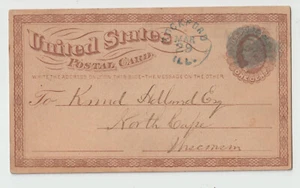 United States
POSTAL CARD
WRITE THE ADDRESS ON THIS SIDE-THE MESSAGE ON THE OTHER
ROCKFORD
MAR
29
ILL.
To Knud Esq
North Cape
Wisconsin